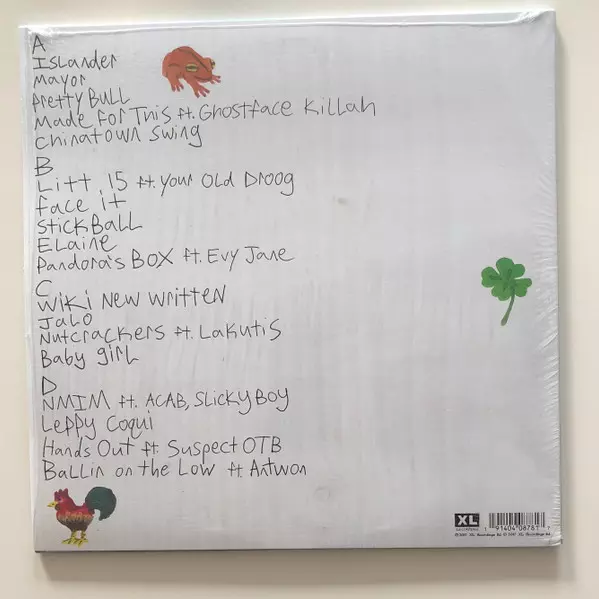 A
Islander
Mayor
Pretty Bull
Made For This ft. Ghostface Killah
Chinatown Swing
B
Litt 15 ft. Your Old Droog
Face it
StickBall
Elaine
Pandora's Box ft. Evy Jane
C
Wiki New Written
Jalo
Nutcrackers ft. Lakutis
Baby girl
D
NMIM ft. ACAB, Slicky Boy
Leppy Coqui
Hands Out ft. Suspect OTB
Ballin on the Low ft Antwon
XL
RECORDINGS
1 91404 08781 1